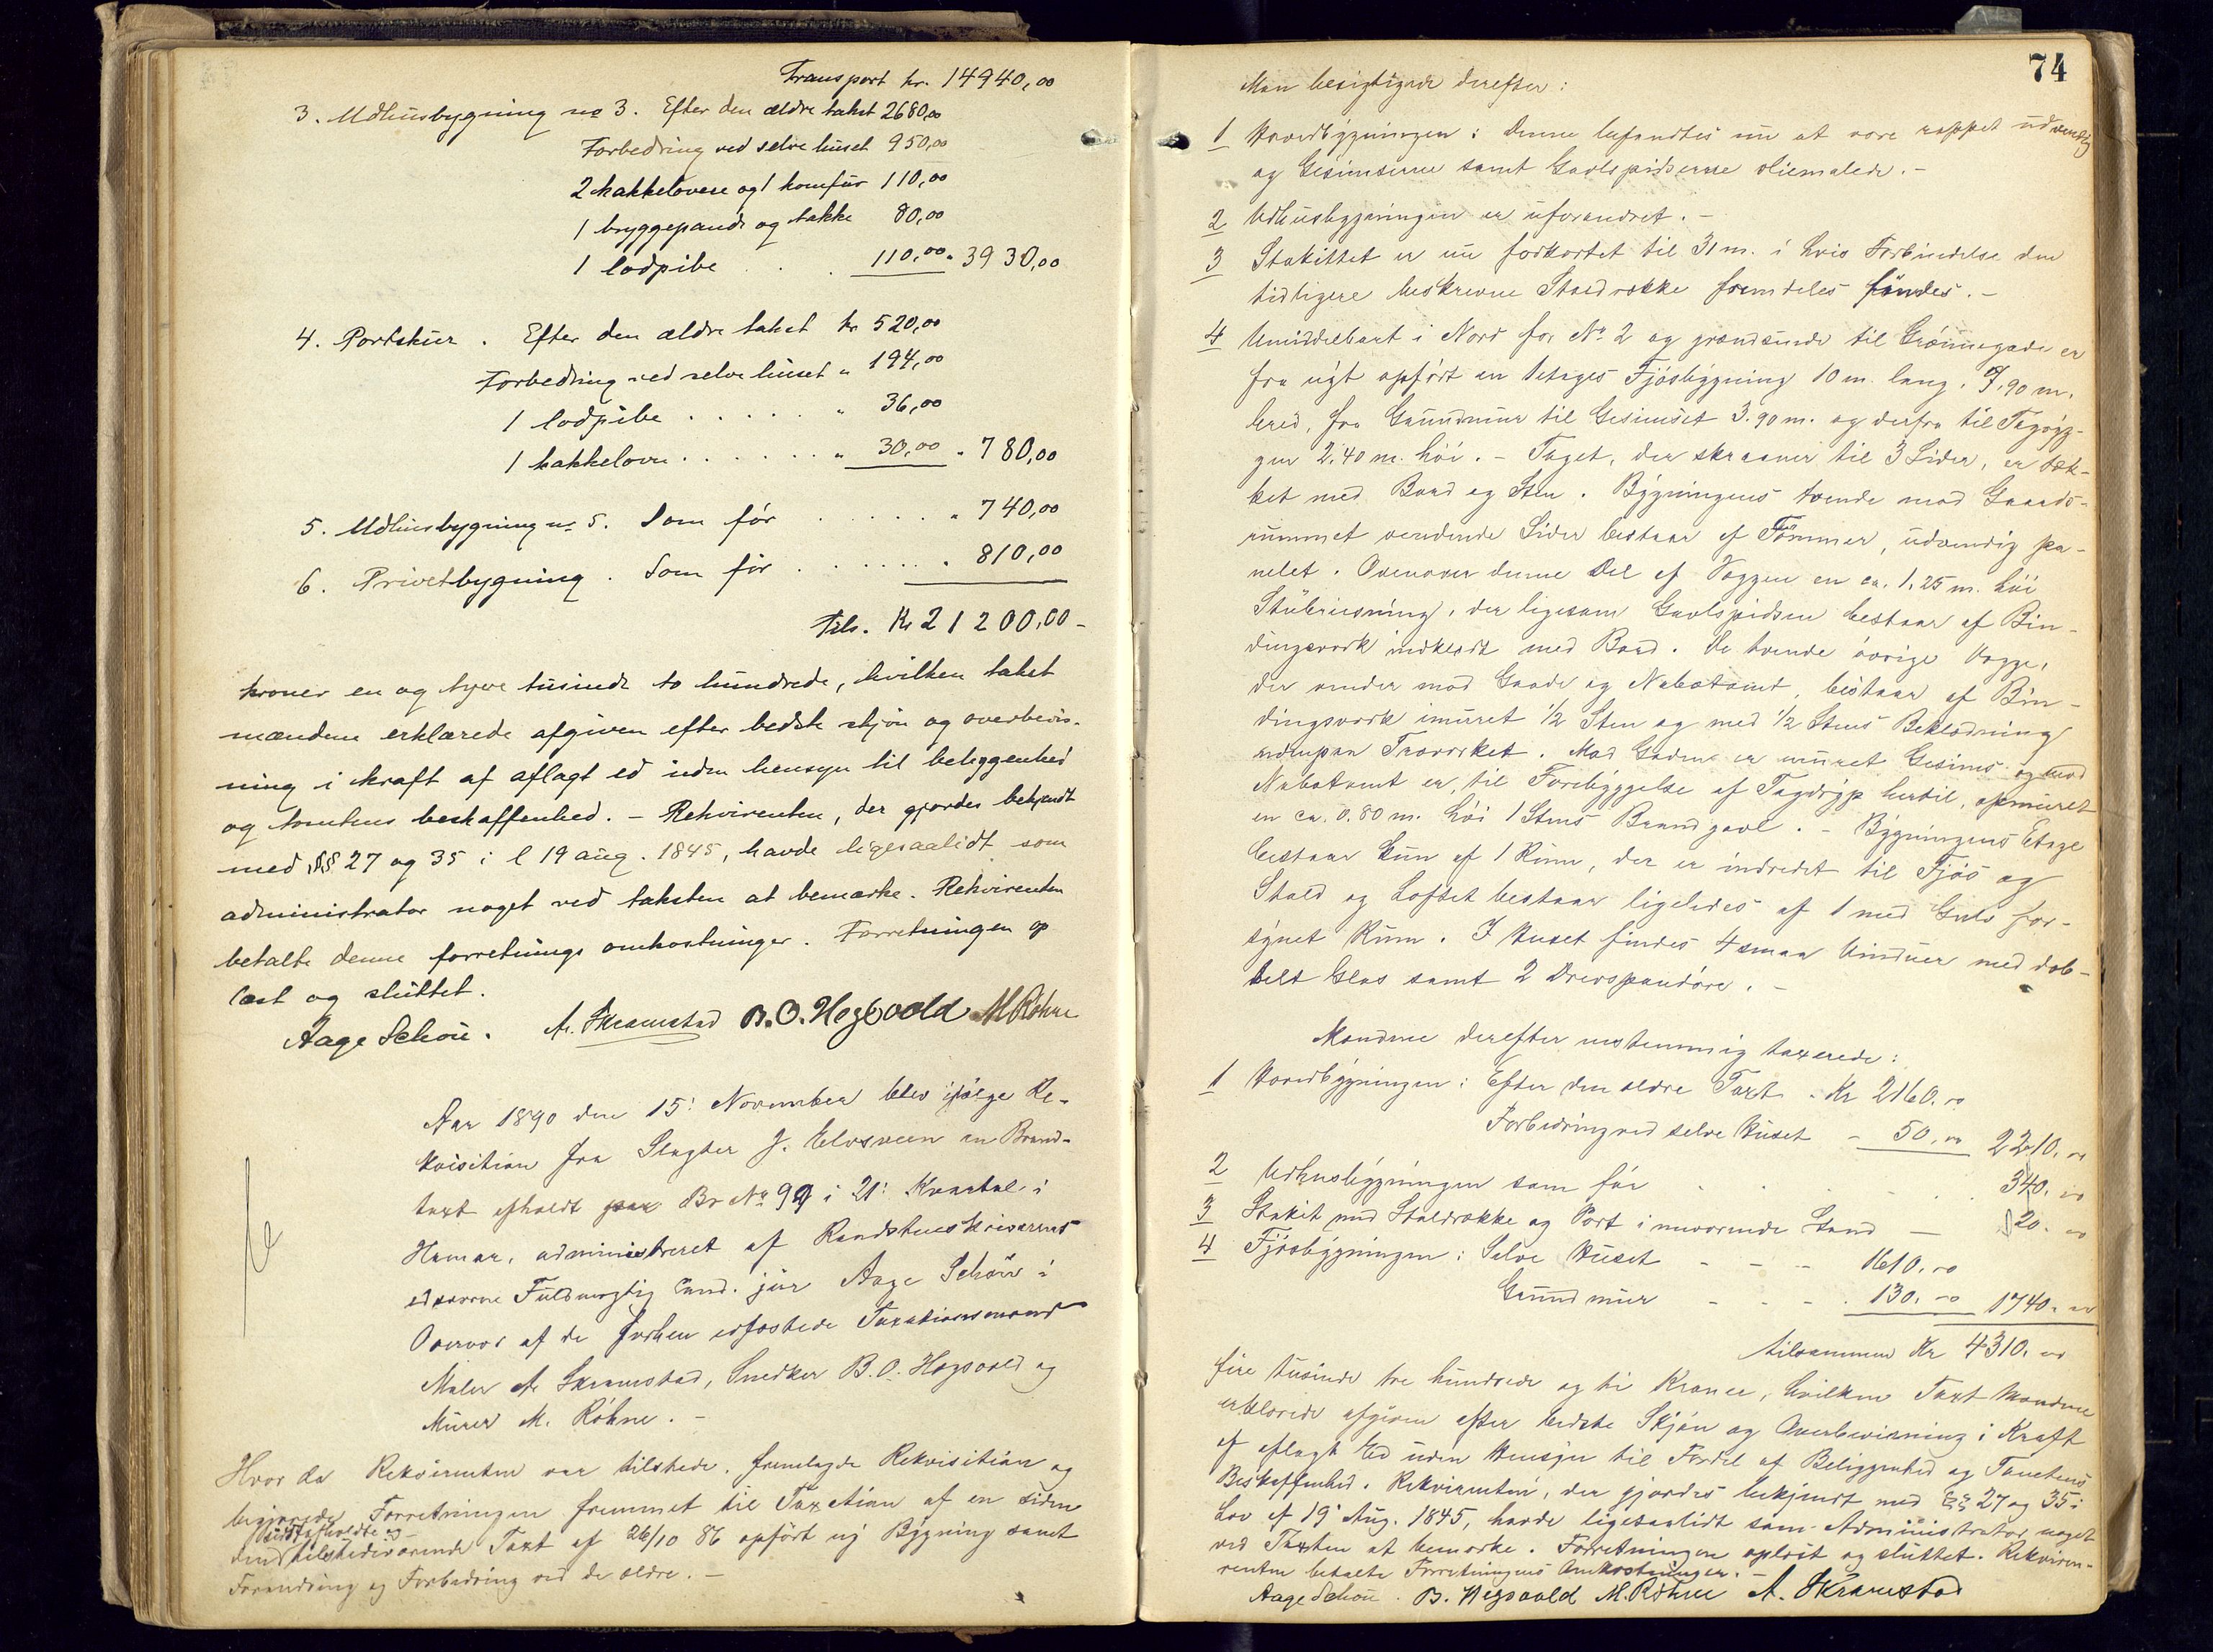 Transport kr. 14940,00
3. Udhusbygning no 3. Efter den ældre takst 2680,00
Forbedring ved selve huset 950,00
2 kakkelovne og 1 komfur 110,00
1 bryggepande og takke 80,00
1 lodpibe . . . 110,00 " 3930,00
4. Portskur . Efter den ældre takst kr 520,00
Forbedring ved selve huset " 194,00
1 lodpibe . . . . . " 36,00
1 kakkelovn . . . . . . " 30,00 " 780,00
5. Udhusbygning no 5. Som før . . . . . " 740,00
6. Privetbygning . Som før . . . . . . " 810,00
Tils. Kr 21200,00 -
kroner en og tyve tusinde to hundrede, hvilken takst
mændene erklærede afgiven efter bedste skjøn og overbevis-
ning i kraft af aflagt ed uden hensyn til beliggenhed
og tomtens beskaffenhed. - Rekvirenten, der gjordes bekjendt
med §§ 27 og 35 i l 19 aug. 1845, havde ligesaalidt som
administrator noget ved taksten at bemærke. Rekvirenten
betalte denne forretnings omkostninger. Forretningen op
læst og sluttet.
Aage Schou. A. Skramstad B. O. Hogvold M Röhne
Aar 1890 den 15: November blev ifølge Re-
kvisition fra Slagter J. Elvsveen en Brand-
taxt afholdt paa Br No 99 i 21: Kvartal i
Hamar, administreret af Raadstueskriverens
edsvorne Fuldmægtig Cand. jur Aage Schou i
Overvær af de forhen edfæstede Taxationsmænd
Maler A. Skramstad, Snedker B. O. Hogvold og
Murer M. Röhne. -
Hvor da Rekvirenten var tilstede, fremlagde Rekvisition og
begjærede Forretningen fremmet til Taxation af en siden
sidst afholdte og
den tilstedeværende Taxt af 26/10 86 opført ny Bygning samt
Forandring og Forbedring ved de ældre. -
74
Man besigtigede derefter:
1 Hovedbygningen: Denne befandtes nu at være rappet udvendig
og Gesimserne samt Gavlspidserne oliemalede. -
2 Udhusbygningen er uforandret. -
3 Stakittet er nu forkortet til 31 m. i hvis Forbindelse den
tidligere beskrevne Staldrække fremdeles findes. -
4 Umiddelbart i Nord for No 2 og grændsende til Grønnegade er
fra nyt opført en 1 etages Fjøsbygning 10 m. lang, 7,90 m.
bred, fra Grundmur til Gesimset 3.90 m. og derfra til Tagryg-
gen 2.40 m. høi. - Taget, der skraaner til 3 Sider, er tæk-
ket med Bord og Sten. Bygningens tvende mod Gaards-
rummet vendende Sider bestaar af Tømmer, udvendig pa-
nelet. Ovenover denne Del af Væggen en ca. 1,25 m. høi
Stubreisning, der ligesom Gavlspidsen bestaar af Bin-
dingsværk indklædt med Bord. De tvende øvrige Vægge,
der vender mod Gade og Nabotomt, bestaar af Bin-
dingsværk imuret 1/2 Sten og med 1/2 Stens Beklædning
udenpaa Træværket. Mod Gaden er muret Gesims og mod
Nabotomt er, til Forebyggelse af Tagdryp hertil, opmuret
en ca. 0.80 m. høi 1 Stens Brandgavl. - Bygningens Etage
bestaar kun af 1 Rum, der er indredet til Fjøs og
Stald og Loftet bestaar ligeledes af 1 med Gulv for-
synet Rum. I Huset findes 4 smaa Vinduer med dob-
belt Glas samt 2 Drevspandøre. -
Mændene derefter enstemmig taxerede:
1 Hovedbygningen: Efter den ældre Taxt - Kr 2160.00
Forbedring ved selve Huset - 50,00 2210.00
2 Udhusbygningen som før . . . - . 340.00
3 Stakit med Staldrække og Port i nuværende Stand - 20.00
4 Fjøsbygningen: Selve Huset - - - 1610.00
Grundmur - - - . 130.00 1740.00
tilsammen Kr 4310.00
fire tusinde tre hundrede og ti Kroner, hvilken Taxt Mændene
erklærede afgiven efter bedste Skjøn og Overbevisning i Kraft
af aflagt Ed uden Hensyn til Fordel af Beliggenhed og Tomtens
Beskaffenhed. Rekvirenten, der gjordes bekjendt med §§ 27 og 35 i
Lov af 19' Aug. 1845, havde ligesaalidt som Administrator noget
ved Taxten at bemærke. Forretningen oplæst og sluttet. Rekvi-
renten betalte Forretningens Omkostninger. -
Aage Schou . B. Hogvold M. Röhne A. Skramstad